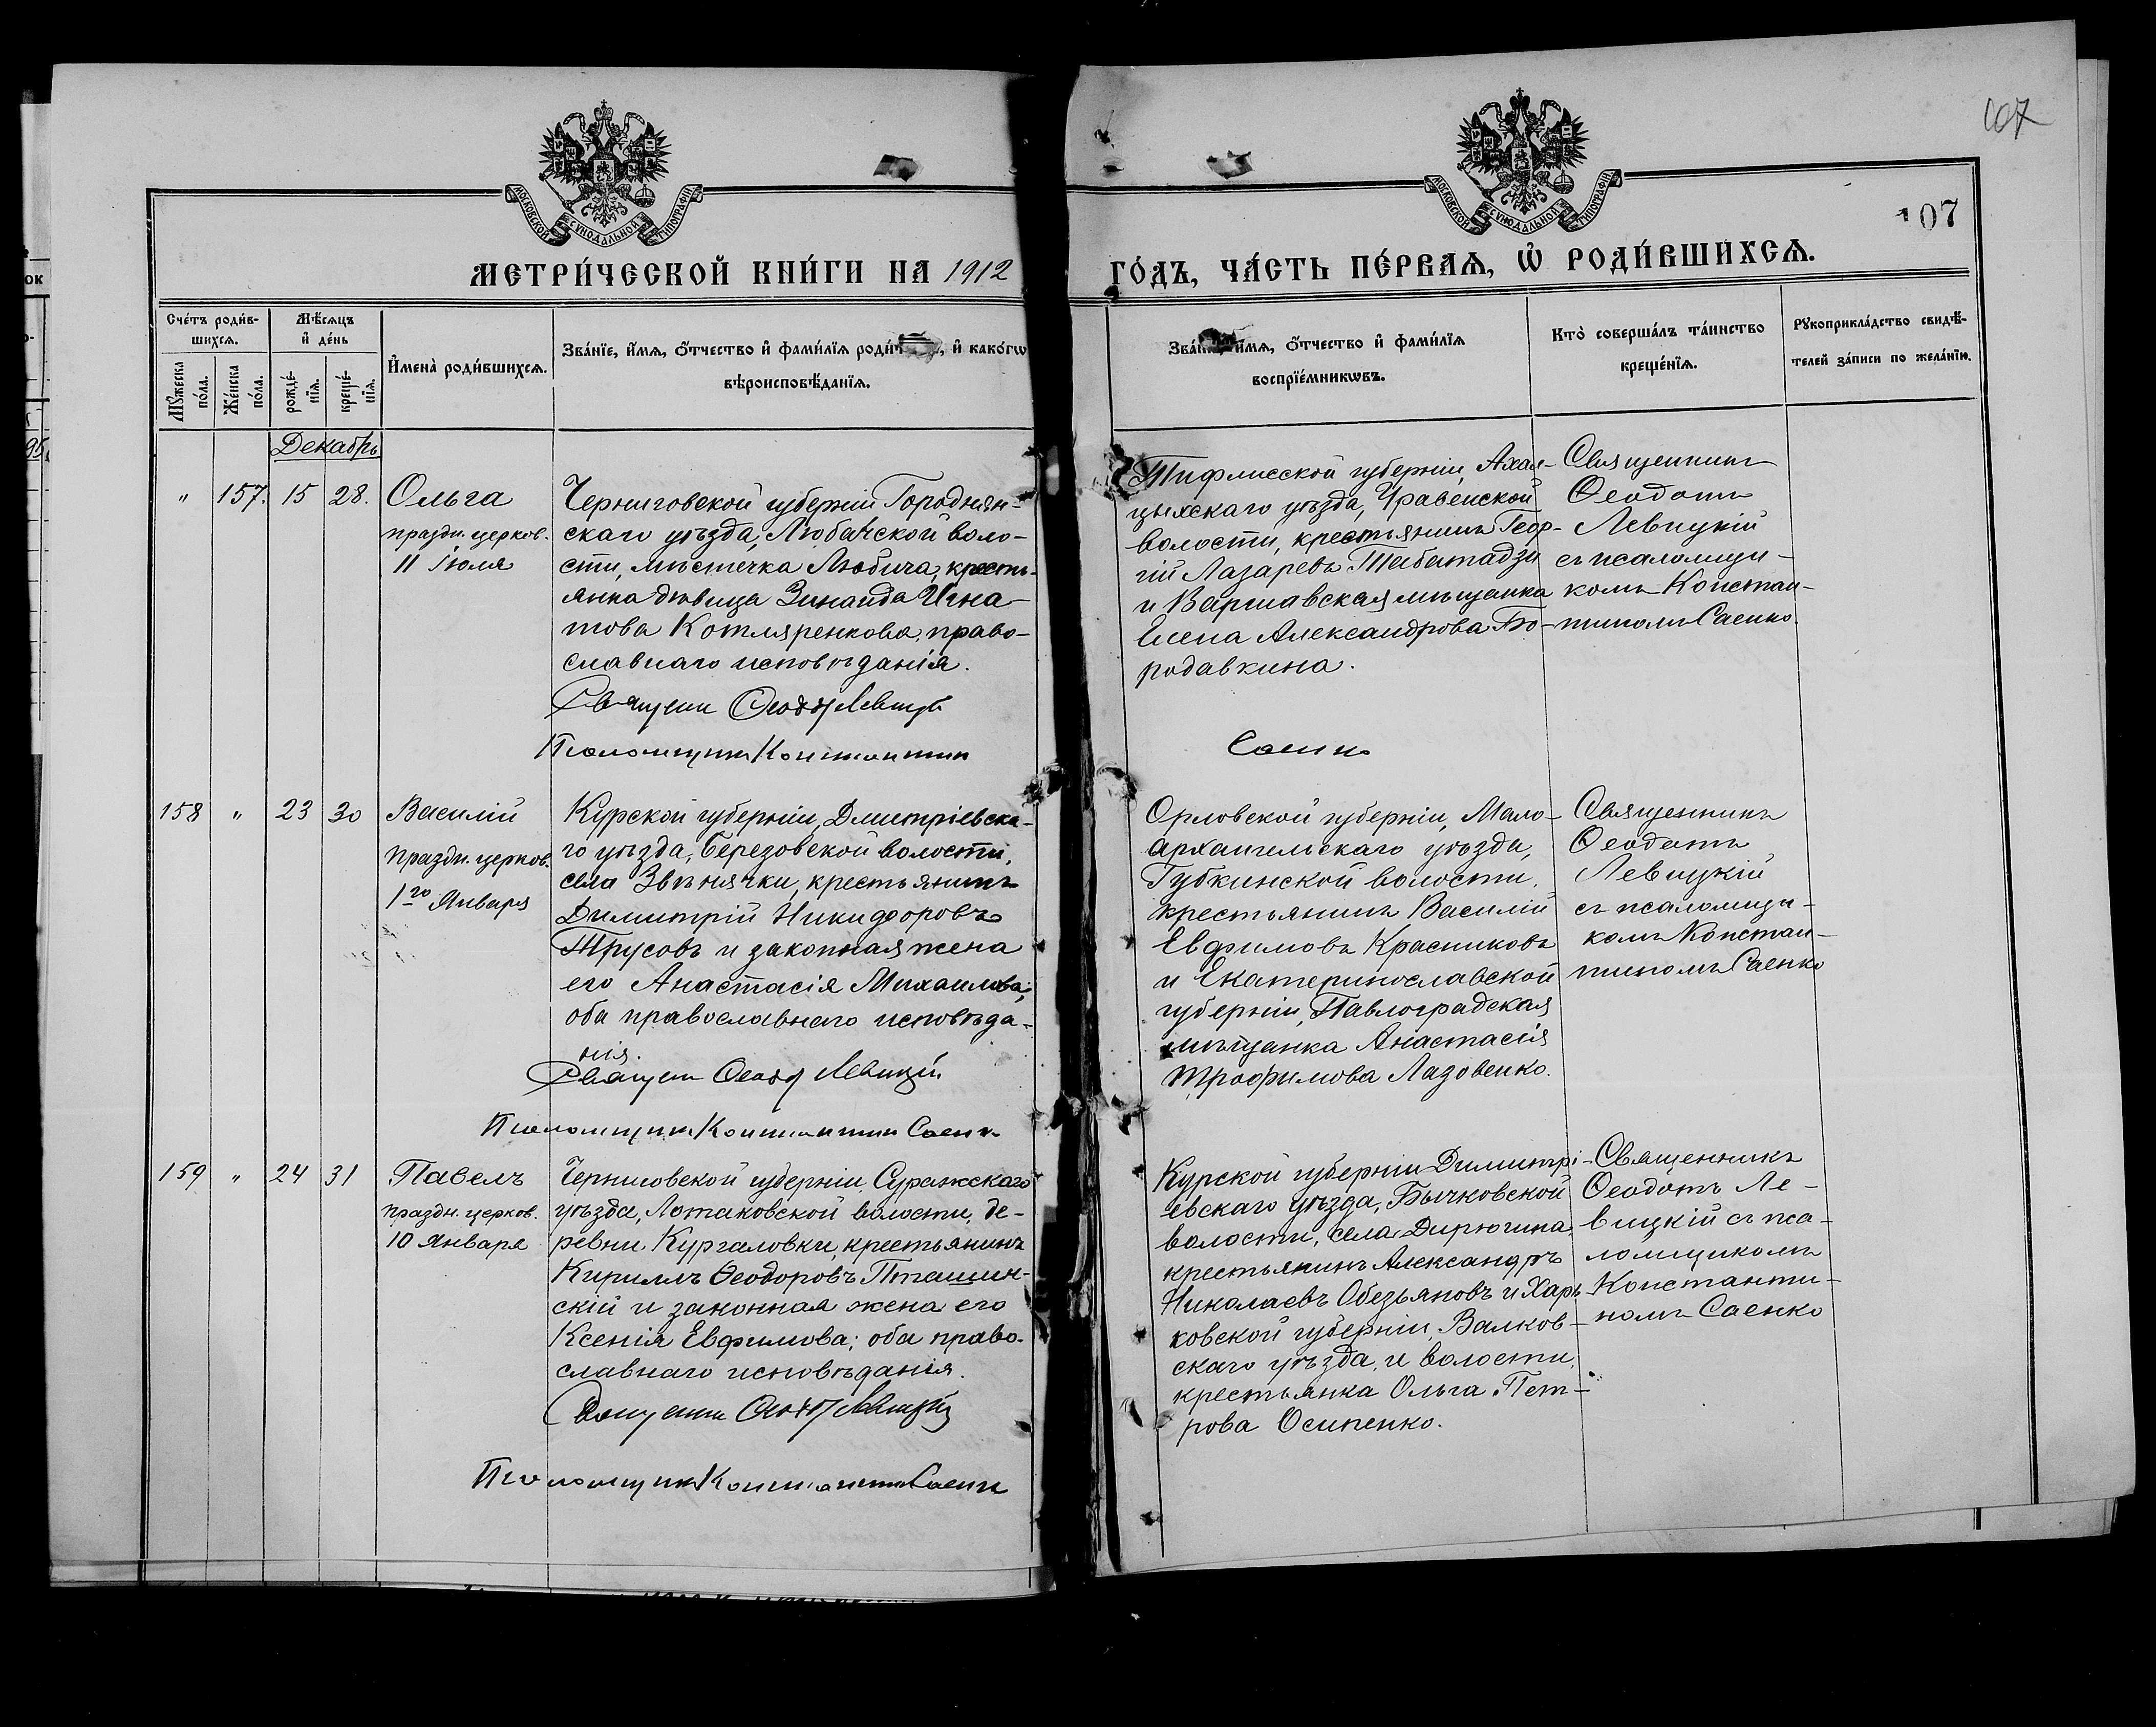 107
МОСКОВСКОЙ СѴНОДАЛЬНОЙ ТИПОГРАФІИ
МОСКОВСКОЙ СѴНОДАЛЬНОЙ ТИПОГРАФІИ
107
МЕТРИ́ЧЕСКОЙ КНИ́ГИ НА 1912
ГО́ДЪ, ЧА́СТЬ ПЕ́РВАѦ, Ѡ҆ РОДИ́ВШИХСѦ.
Сче́тъ роди́в-
шихсѧ.
Мѣ́сѧцъ
и҆ де́нь
Мꙋ́жеска
по́ла.
Же́нска
по́ла.
рожде́-
нїѧ.
креще́-
нїѧ.
И҆мена̀ роди́вшихсѧ.
Зва́нїе, и҆́мѧ, ѻ҆́тчество и҆ фами́лїѧ и҆ како́гѡ
вѣроисповѣ́данїѧ.
и҆́мѧ, ѻ҆́тчество и҆ фами́лїѧ
воспрїе́мникѡвъ.
Кто̀ соверша́лъ та́инство
креще́нїѧ.
Рꙋкоприкла́дство свидѣ́-
телей за́писи по жела́нїю.
Декабрь
" 157. 15 28. Ольга
праздн. церков.
11 Іюля
Черниговской губерніи Городнян-
скаго уѣзда, Любачской воло-
сти, мѣстечка Любича, кресть-
янка дѣвица Зинаида Игна-
това Котляренкова, право-
славнаго исповѣданія.
Священ Ѳеодот Левицкій
Псаломщикъ Константин
Тифлисской губерніи, Ахал-
цыхскаго уѣзда, Уравельской
волости, крестьянинъ Геор-
гій Лазаревъ Табатадзи
и Варшавская мѣщанка
Елена Александрова Бо-
родавкина.
Саенко
Священникъ
Ѳеодотъ
Левицкій
съ псаломщи-
комъ Констан-
тиномъ Саенко.
158 " 23 30 Василій
праздн. церков.
1го Января
Курской губерніи, Дмитріевска-
го уѣзда, Березовской волости,
села Звѣнячки, крестьянинъ
Димитрій Никифоровъ
Трусовъ и законная жена
его Анастасія Михаилова;
оба православнаго исповѣда-
нія.
Священ Ѳеодот Левицкій
Псаломщикъ Константин Саенко
Орловской губерніи, Мало-
архангельскаго уѣзда,
Губкинской волости,
крестьянинъ Василій
Евфимовъ Красниковъ
и Екатеринославской
губерніи, Павлоградская
мѣщанка Анастасія
Трофимова Лазовенко.
Священникъ
Ѳеодотъ
Левицкій
съ псаломщи-
комъ Констан-
тиномъ Саенко
159 " 24 31 Павелъ
праздн. церков.
10 Января
Черниговской губерніи, Суражскаго
уѣзда, Лотаковской волости, де-
ревни Кургаловки, крестьянинъ
Кириллъ Ѳеодоровъ Пташин-
скій и законная жена его
Ксенія Евфимова; оба право-
славнаго исповѣданія.
Священ Ѳеодот Левицкій
Псаломщикъ Константин Саенко
Курской губерніи Димитрі-
евскаго уѣзда, Бычковской
волости, села Дирюгина,
крестьянинъ Александръ
Николаевъ Обезьяновъ и Харь-
ковской губерніи, Валков-
скаго уѣзда, и волости,
крестьянка Ольга Пет-
рова Осипенко.
Священникъ
Ѳеодотъ Ле-
вицкій съ пса-
ломщикомъ
Константи-
номъ Саенко